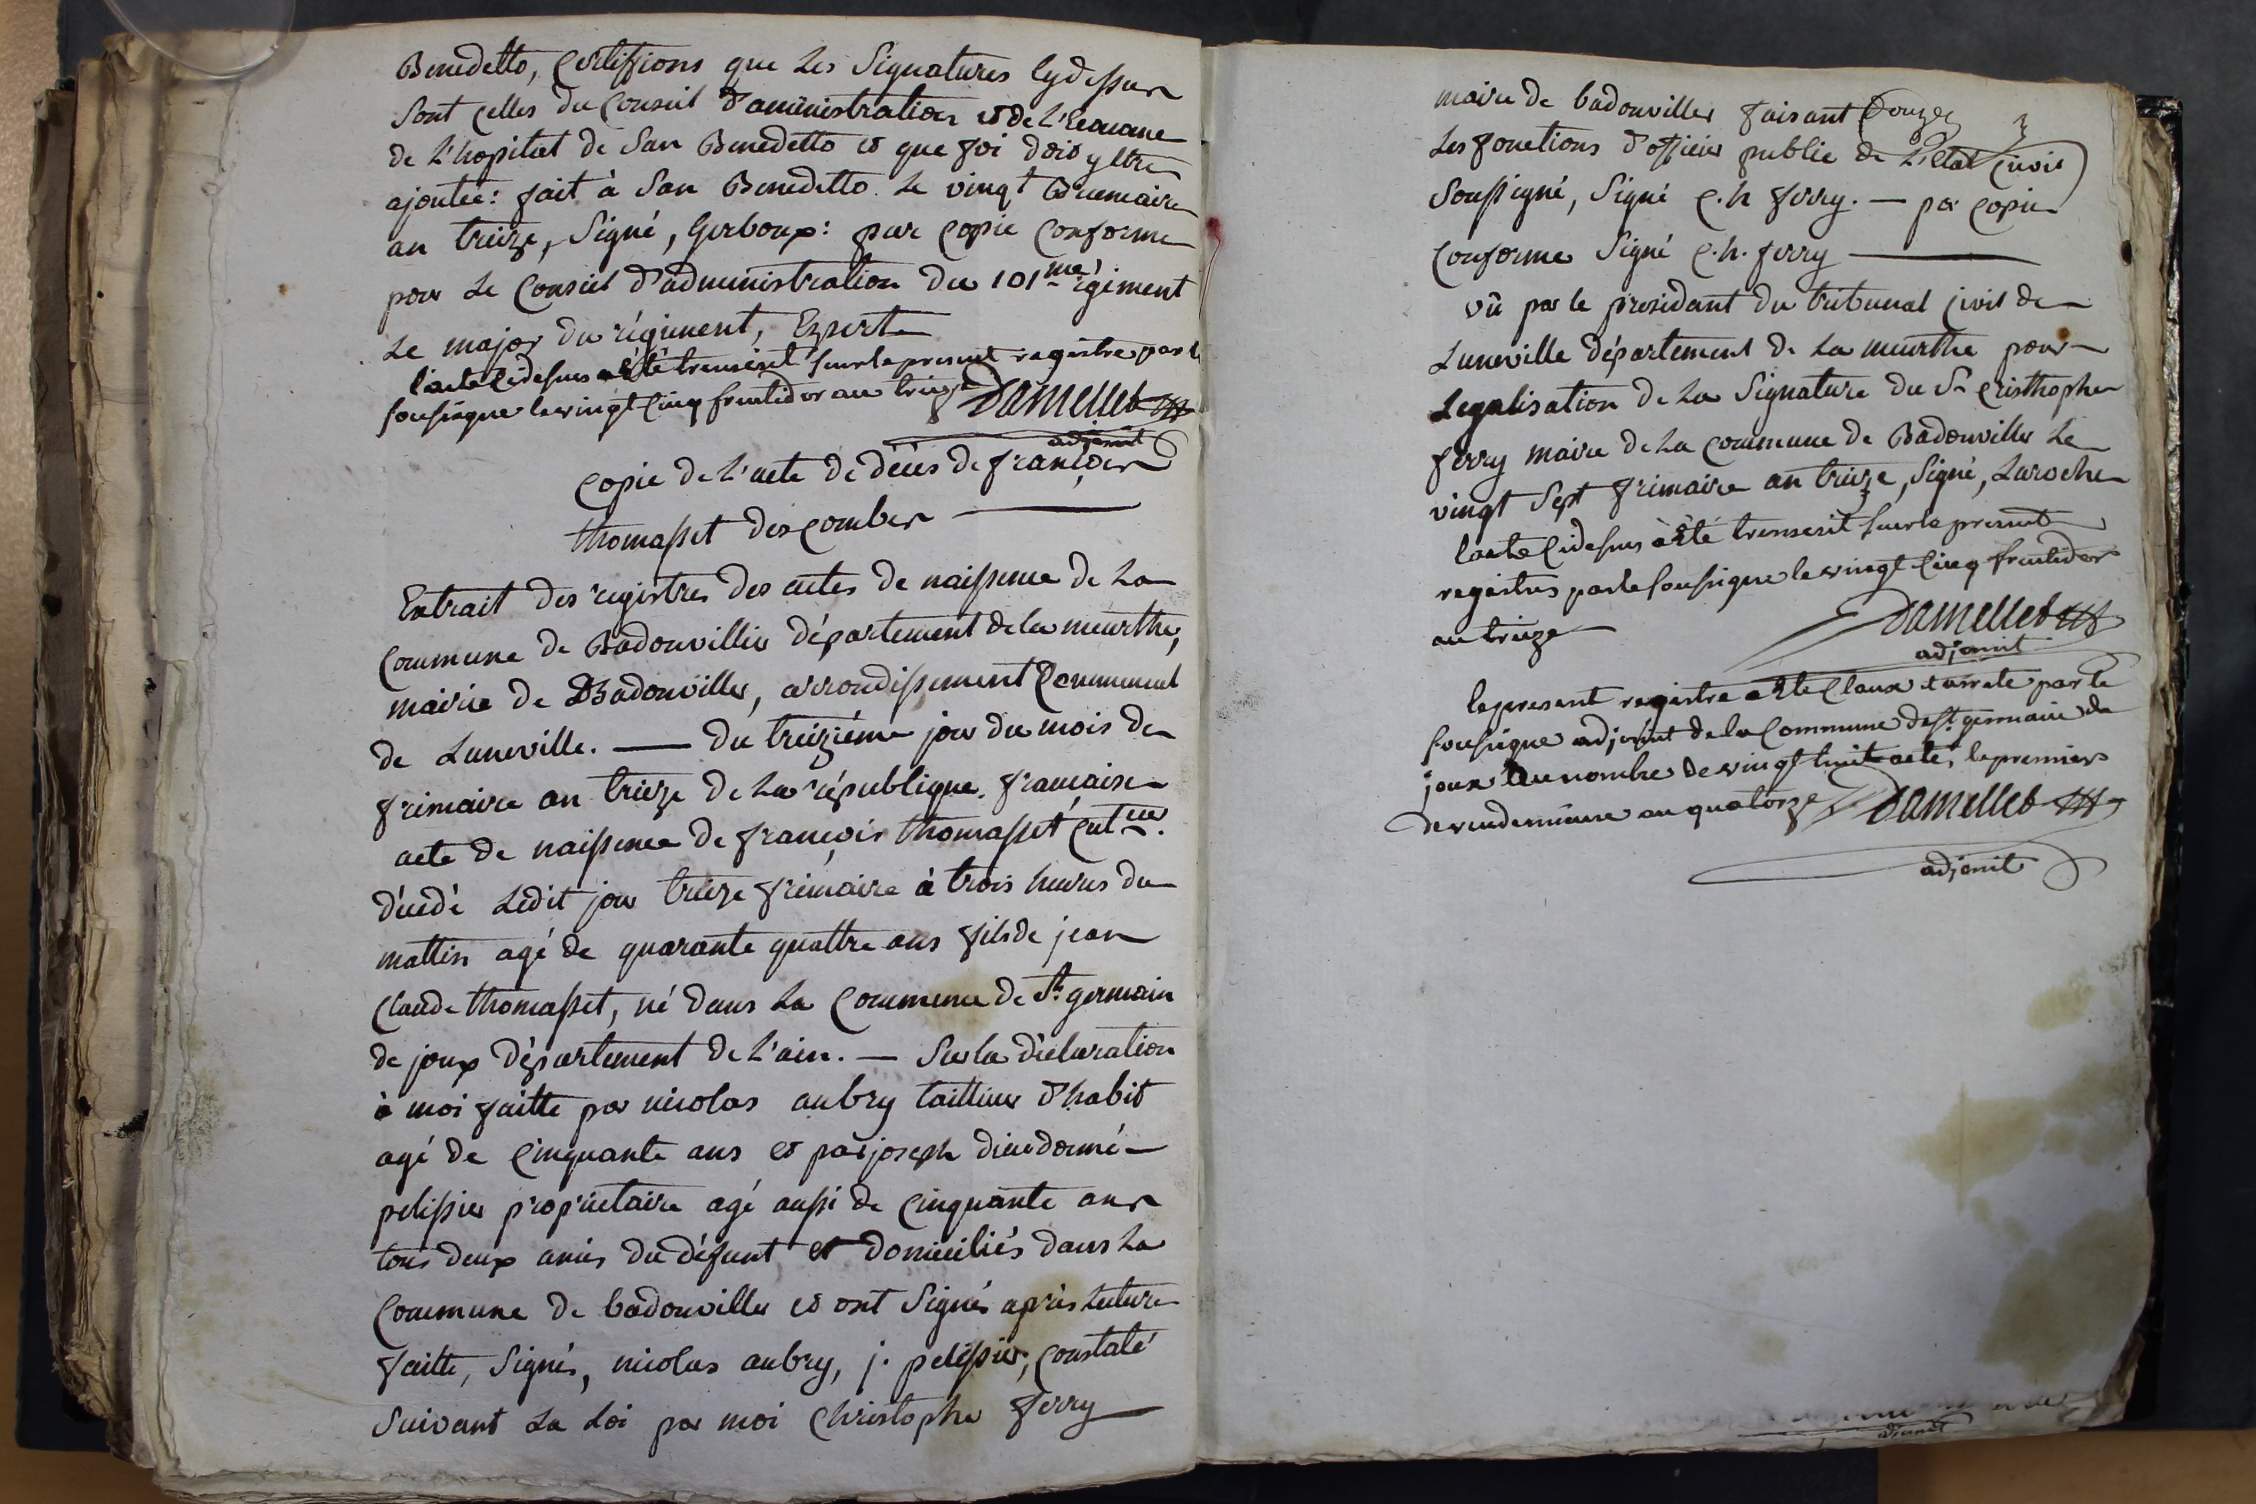 Benedetto, Certiffions que Les Signatures cydessus
Sont celles du Conseil d'administration et de L'Econome
de L'hopital de San Benedetto et que foi doit y être
ajoutée: fait à San Benedetto. Le vingt Brumaire
an treize, Signé, Gerboux: pour copie Conforme
pour Le Conseil d'administration du 101me régiment
Le major du régiment, Expert
l'acte Cidesus a été transcrit sur le present registre par le
sousigne le vingt Cinq fructidor an treize Damellet
adjoint
Copie de L'acte de décès de françois
thomasset des combes
Extrait des registres des actes de naissence de La
Commune de Badonviller département de la meurthe,
mairie de Badonviller, arrondissement Communal
de Luneville. — Du treizième jour du mois de
frimaire an treize de La république française
acte de naissence de françois thomasset
décédé Ledit jour treize frimaire à trois heures du
mattin agé de quarante quattre ans fils de jean
Claude thomasset, né dans La Commune de St germain
de joux département de L'ain. — Sur la déclaration
à moi faitte par nicolas aubry taillieur d'habit
agé de Cinquante ans et par joseph dieudonné
pelissier propriétaire agé aussi de Cinquante ans
tous deux amis du défunt et domiciliés dans La
Commune de badonviller et ont Signés après Lecture
faitte, Signés, nicolas aubry, j. pelissier, Constaté
Suivant La Loi par moi Christophe ferry
maire de badonviller faisant Douze
Les fonctions d'officier public de L'état Civil
Soussigné, Signé C. h ferry. — par copie
Conforme Signé C. h. ferry
vû par le president du tribunal civil de
Luneville département de La meurthe pour
Legalisation de La Signature du Sr Cristhophe
ferry maire de La commune de Badonviller Le
vingt Sept frimaire an treize, Signé, Laroche
l'acte Cidesus à été transcrit sur le present
registres par le soussigne le vingt Cinq fructidor
an treize Damellet
adjoint
le present registre a été Claux et arrete par le
sousigne adjoint de la Commune de st germain de
joux au nombre de vingt huit actes le premier
de vendemiaire an quatorze Damellet
adjoint
adjoint